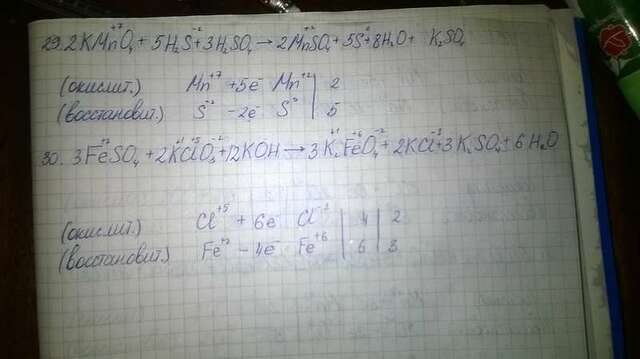 29. 2KMn⁺⁷O₄ + 5H₂S⁻² + 3H₂SO₄ → 2Mn⁺²SO₄ + 5S⁰ + 8H₂O + K₂SO₄
(окислит.) Mn⁺⁷ +5e⁻ Mn⁺² | 2
(восстановит.) S⁻² -2e⁻ S⁰ | 5
30. 3Fe⁺²SO₄ + 2K⁺¹Cl⁺⁵O₃⁻² + 12KOH → 3K₂⁺¹Fe⁺⁶O₄⁻² + 2KCl⁻¹ + 3K₂SO₄ + 6H₂O
(окислит.) Cl⁺⁵ + 6e⁻ Cl⁻¹ | 4 | 2
(восстановит.) Fe⁺² - 4e⁻ Fe⁺⁶ | 6 | 3